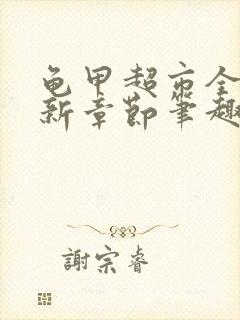 龟甲超市全
新章節筆趣
謝宗睿